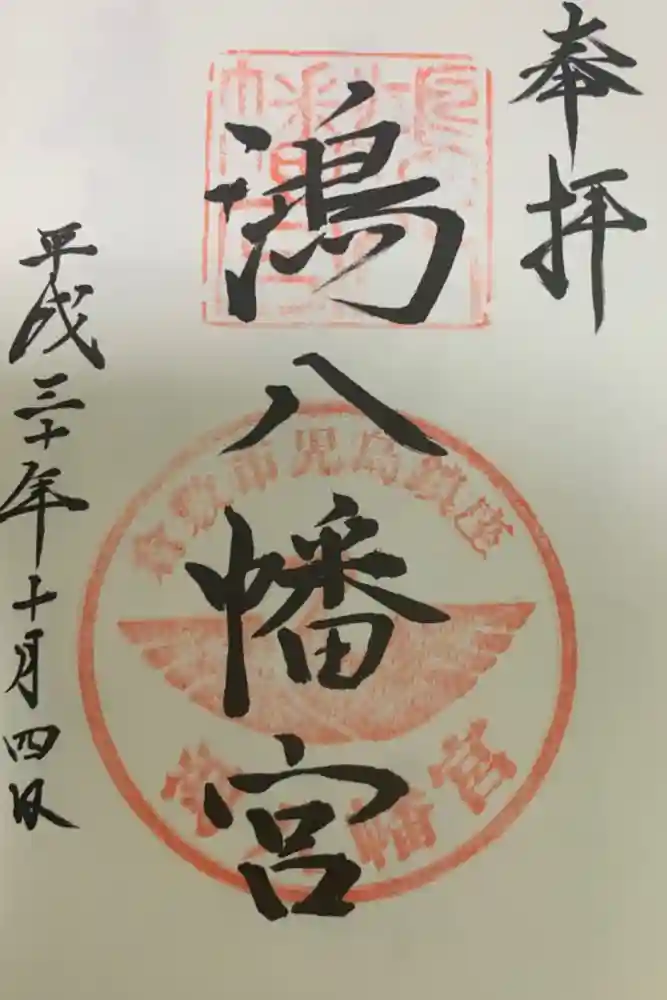 奉拝
鴻八幡宮
倉敷市児島鎮座
八幡宮
平成三十年十月四日